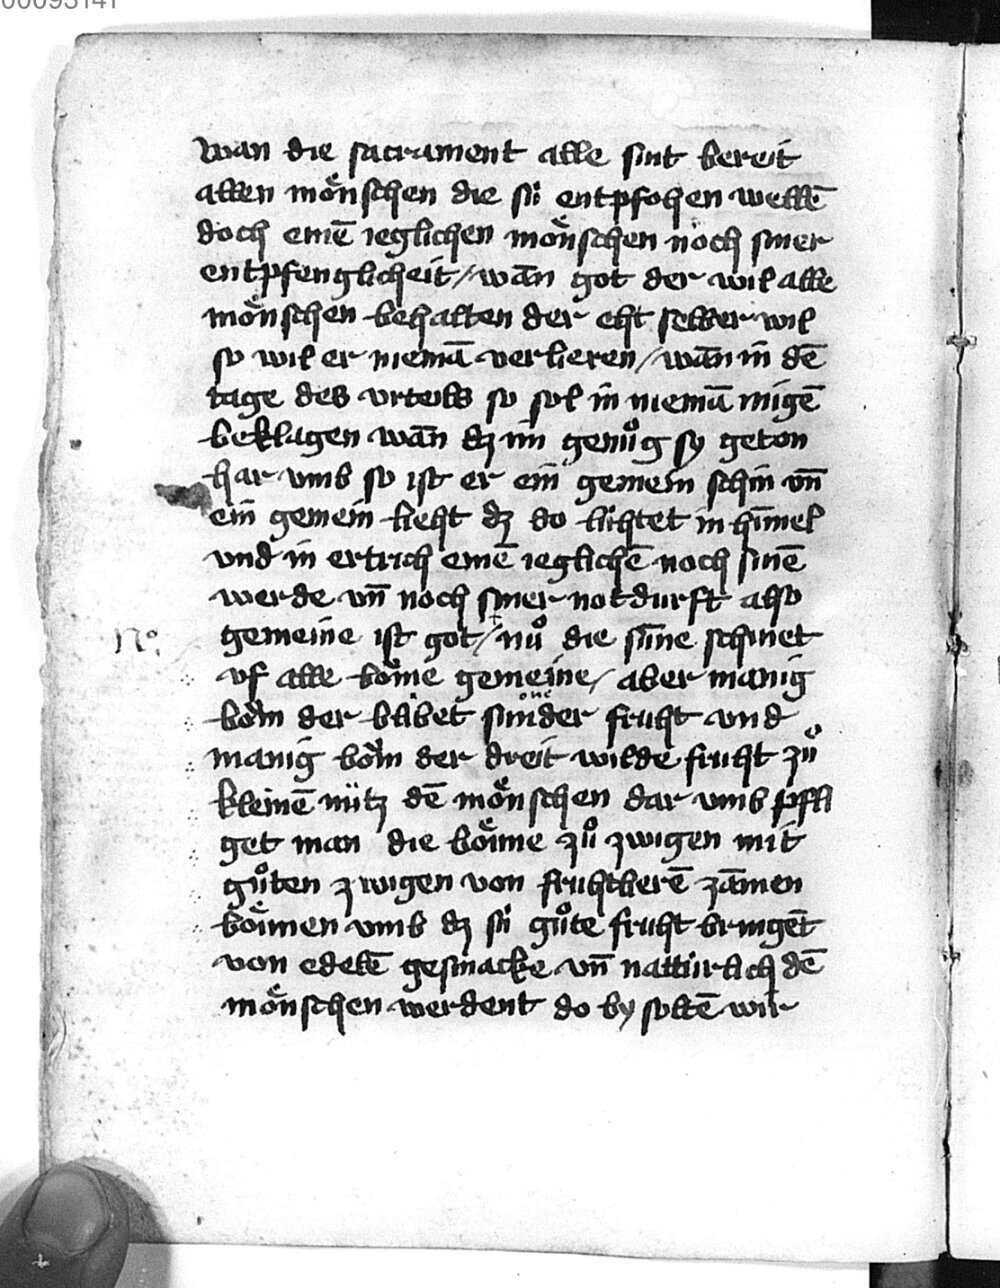 00093141
wan die sacrament alle sint bereit
allen mönschen die sü entpfohen wellē
doch einē ieglichen mönschen noch siner
entpfenglicheit / wān got der wil alle
mönschen behalten der eht selber wil
so wil er niemā verlieren / wān in dē
tage des vrteils so sol in niemā mügē
beklagen wān dz im genůg sy geton
har vmb so ist er ein gemein schin vn̄
ein gemein lieht dz do lühtet in himel
vnd in ertrich einē ieglichē noch sinē
werde vn̄ noch siner notdurft also
gemeine ist got / nů die sūne schinet
N°.
vf alle böme gemeine / aber manig
bōm der blibet sunder fruht vnd
one
manig bōm der dreit wilde fruht zů
kleinē nütz dē mönschen dar vmb pfli
get man die böime zů zwigen mit
gůten zwigen von fruhtberē zāmen
böimen vmb dz sü gůte fruht bringēt
von edelē gesmacke vn̄ nattürlich dē
mönschen werdent do by soltē wir